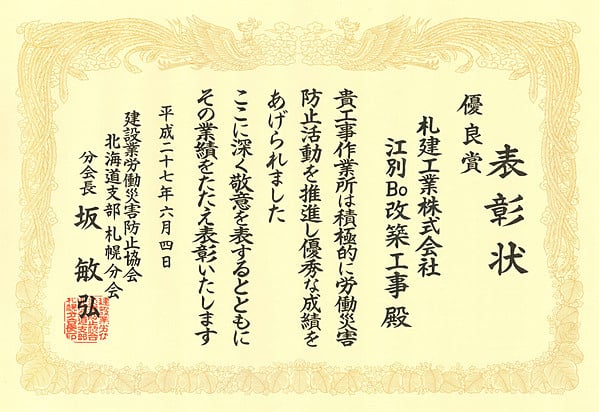 表彰状
優良賞
札建工業株式会社
江別Bo改築工事 殿
貴工事作業所は積極的に労働災害
防止活動を推進し優秀な成績を
あげられました
ここに深く敬意を表するとともに
その業績をたたえ表彰いたします
平成二十七年六月四日
建設業労働災害防止協会
北海道支部 札幌分会
分会長 坂 敏弘